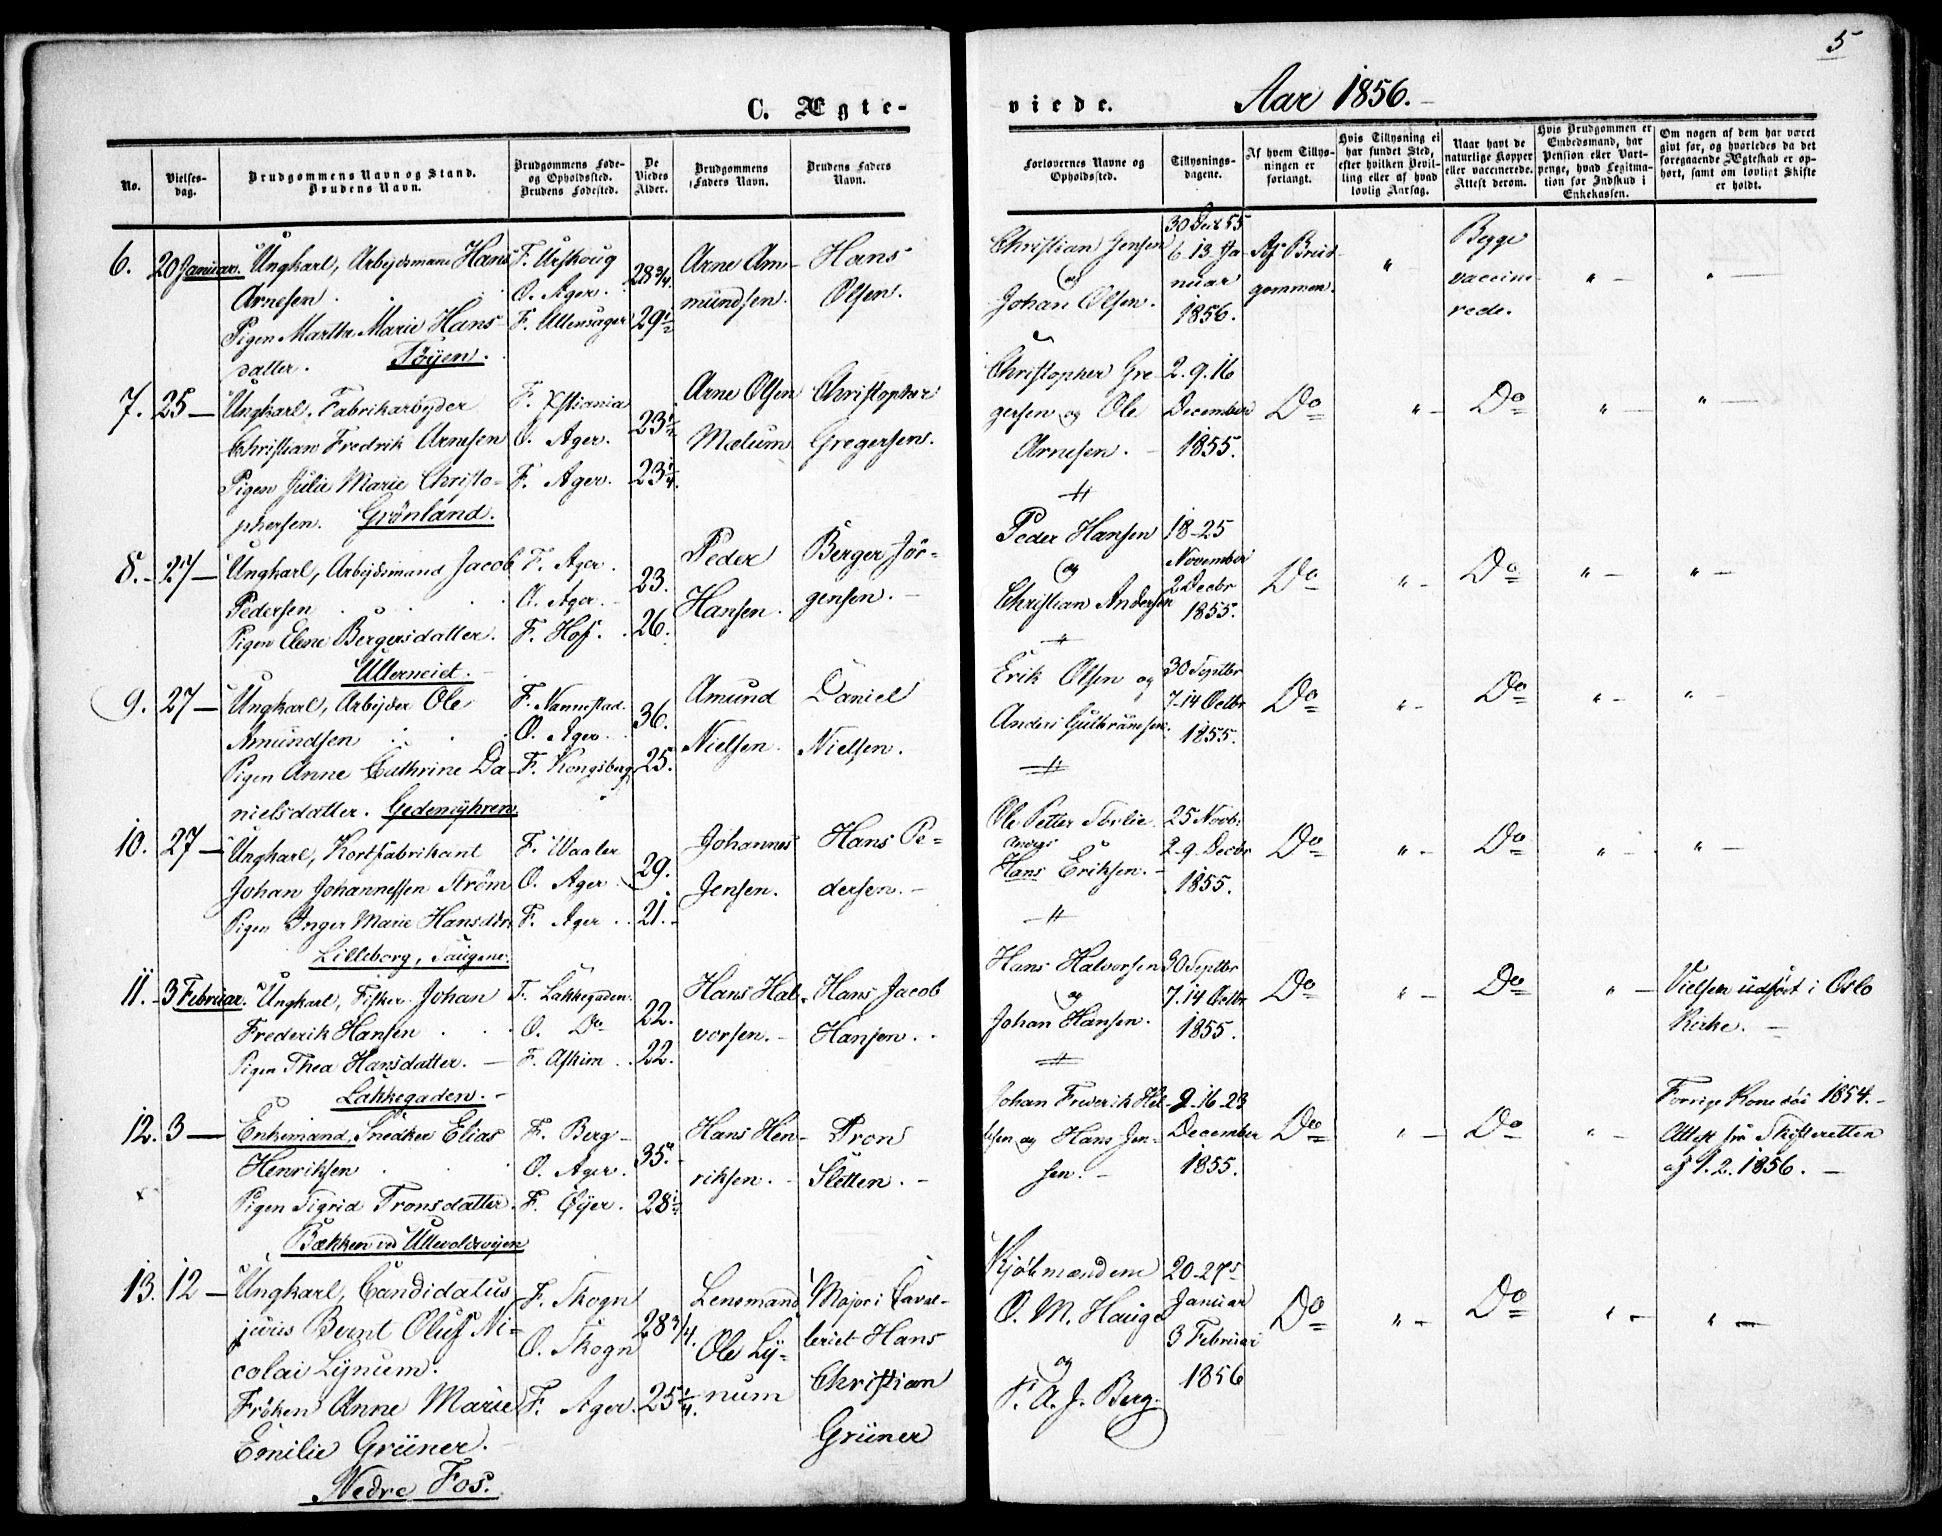 5
C. Ægte-
viede.
Aar 1856.
No.
Vielses-
dag.
Brudgommens Navn og Stand.
Brudens Navn.
Brudgommens Føde-
og Opholdssted.
Brudens Fødested.
De
Viedes
Alder.
Brudgommens
Faders Navn.
Brudens Faders
Navn.
Forlovernes Navne og
Opholdssted.
Tillysnings-
dagene.
Af hvem Tillys-
ningen er
forlangt.
Hvis Tillysning ei
har fundet Sted,
efter hvilken Bevil-
ling eller af hvad
lovlig Aarsag.
Naar havt de
naturlige Kopper
eller vaccinerede.
Attest derom.
Hvis Brudgommen er
Embedsmand, har
Pension eller Vart-
penge, hvad Legitima-
tion for Indskud i
Enkekassen.
Om nogen af dem har været
givt før, og hvorledes da det
foregaaende Ægteskab er op-
hørt, samt om lovligt Skifte
er holdt.
6. 20 Januar.
Ungkarl, Arbejdsmand Hans
Arnesen
Pigen Martha Marie Hans-
datter. Tøyen.
F. Urskoug
O. Ager.
F. Ullensager
28 3/4
29 1/2
Arne Am-
mundsen.
Hans
Olsen.
Christian Jensen
og
Johan Olsen.
30 Dec 55
6 13 Ja-
nuar
1856.
Af Brud-
gommen.
" -
Begge
vaccine-
rede.
" -
" -
7. 25 -
Ungkarl, Fabrikarbejder
Christian Fredrik Arnesen
Pigen Julie Marie Christo-
phersen. Grönland.
F. Xstiania
O. Ager.
F. Ager.
23 1/2
23 1/4.
Arne Olsen
Mælum
Christopher
Gregersen.
Christopher Gre-
gersen og Ole
Arnesen.
2. 9. 16
December
1855.
Do
" -
Do
" -
" -
8. - 27 -
Ungkarl, Arbejdsmand Jacob
Pedersen
Pigen Elene Bergersdatter.
Ullerneiet.
F. Ager.
O. Ager.
F. Hof.
23.
26.
Peder
Hansen.
Berger Jör-
gensen.
Peder Hansen
og
Christian Andersen
18-25
November
2 Decbr
1855.
Do
" -
Do
" -
" -
9. 27 -
Ungkarl, Arbejder Ole
Amundsen
Pigen Anne Cathrine Da-
nielsdatter. Gedemyhren.
F. Nannestad.
O. Ager.
F. Kongsberg
36.
25.
Amund
Nielsen.
Daniel
Nielsen.
Erik Olsen og
Anders Gulbransen.
30 Septbr
7-14 Octbr
1855.
Do
" -
Do
" -
" -
10. 27 -
Ungkarl, Kortfabrikant
Johan Johannessen Ström
Pigen Inger Marie Hansdtr
Lilleborg, Saugene.
F. Waaler
O. Ager
F. Ager
29.
21.
Johannes
Jensen.
Hans Pe-
dersen.
Ole Petter
Hans Eriksen.
25 Novbr
2-9 Decbr
1855.
Do
" -
Do
" -
" -
11. - 3 Februar.
Ungkarl, Fisker Johan
Frederik Hansen
Pigen Thea Hansdatter.
Lakkegaden.
F. Lakkegaden
O. Do
F. Askim
22.
22.
Hans Hal-
vorsen.
Hans Jacob
Hansen.
Hans Halvorsen
og
Johan Hansen.
30 Septbr
7. 14 Octbr
1855.
Do
" -
Do
" -
Vielsen udført i Oslo
Kirke.
12. 3 -
Enkemand, Snedker Elias
Henriksen
Pigen Sigrid Tronsdatter.
Bækken ved Ullevoldsveien
F. Berg
O. Ager.
F. Öyer.
35.
28 1/2
Hans Hen-
riksen.
Tron
Sletten.
Johan Frederik
og Hans Jen-
sen.
9-16-23
December
1855.
Do
" -
Do
" -
Forrige Kone død 1854.
Attest fra Skifteretten
af 1. 2. 1856.
13. 12 -
Ungkarl, Candidatus
juris Bernt Oluf Ni-
colai Lynum.
Fröken Anne Marie
Emilie Grüner.
Nedre Fos.
F. Skogn
O. Skogn
F. Ager.
28 3/4.
25 1/4.
Lensmand
Ole Ly-
num
Major i Caval-
leriet Hans
Christian
Grüner
Kjöbmændene
O. M. Hauge
og
P. A. J. Berg.
20-27
Januar
3 Februar
1856
Do
" -
Do
" -
" -